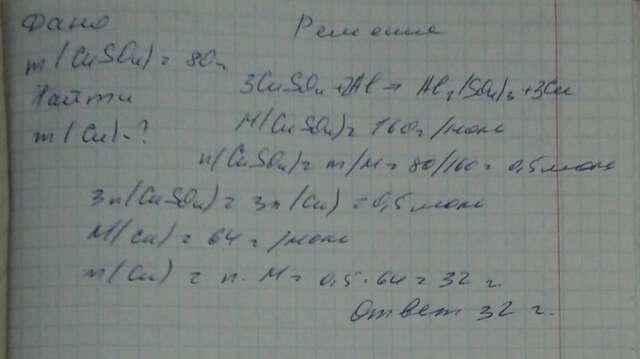 Дано
Решение
m(CuSO₄) = 80г
Найти
m(Cu)-?
3CuSO₄+2Al → Al₂(SO₄)₃+3Cu
M(CuSO₄) = 160г/моль
n(CuSO₄) = m/M = 80/160 = 0,5моль
3n(CuSO₄) = 3n(Cu) = 0,5моль
M(Cu) = 64 г/моль
m(Cu) = n·M = 0,5·64 = 32 г.
Ответ 32 г.